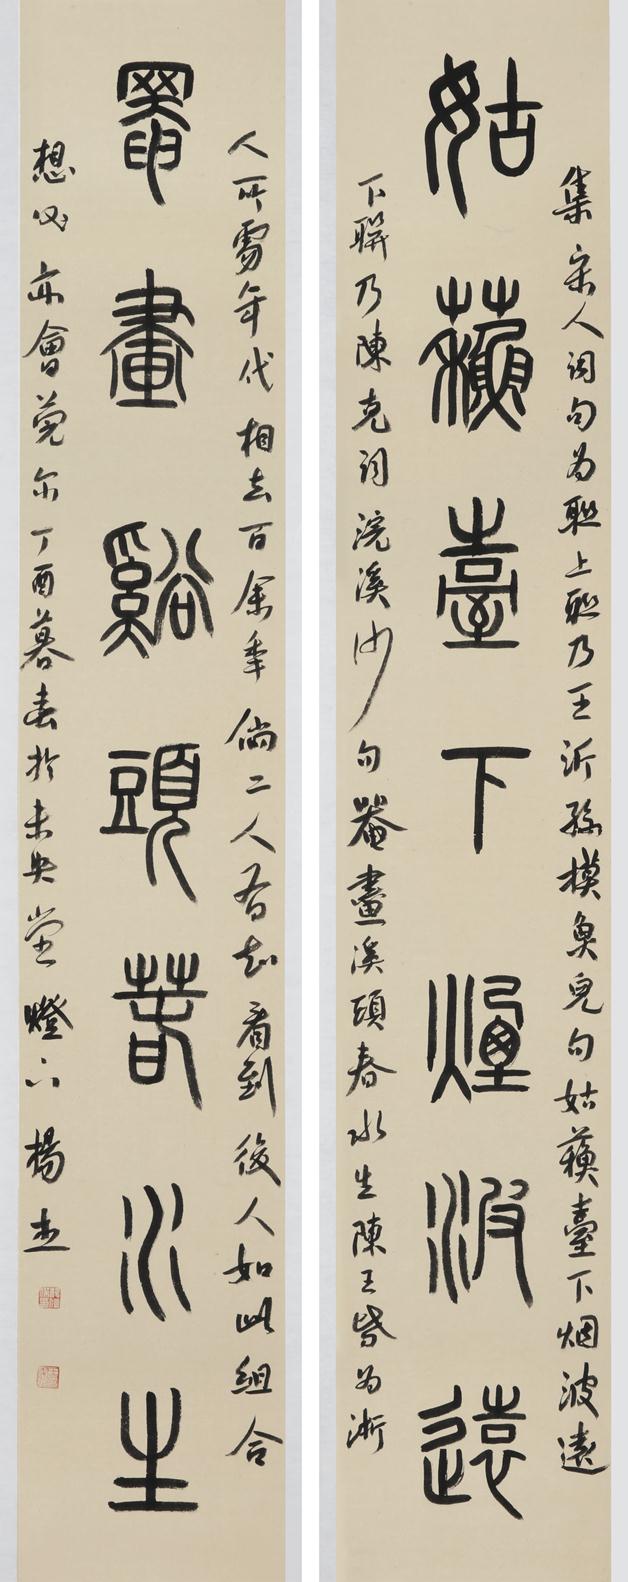 集宋人詞句為聯上聯乃王沂孫摸魚兒句姑蘇臺下烟波遠
姑蘇臺下煙波遠
下聯乃陳克詞浣溪沙句罨畫溪頭春水生陳王皆為浙
人所處年代相去百余年倘二人有知看到後人如此組合
罨畫谿頭春水生
想必亦會莞尔丁酉暮春於未央堂燈下楊杰